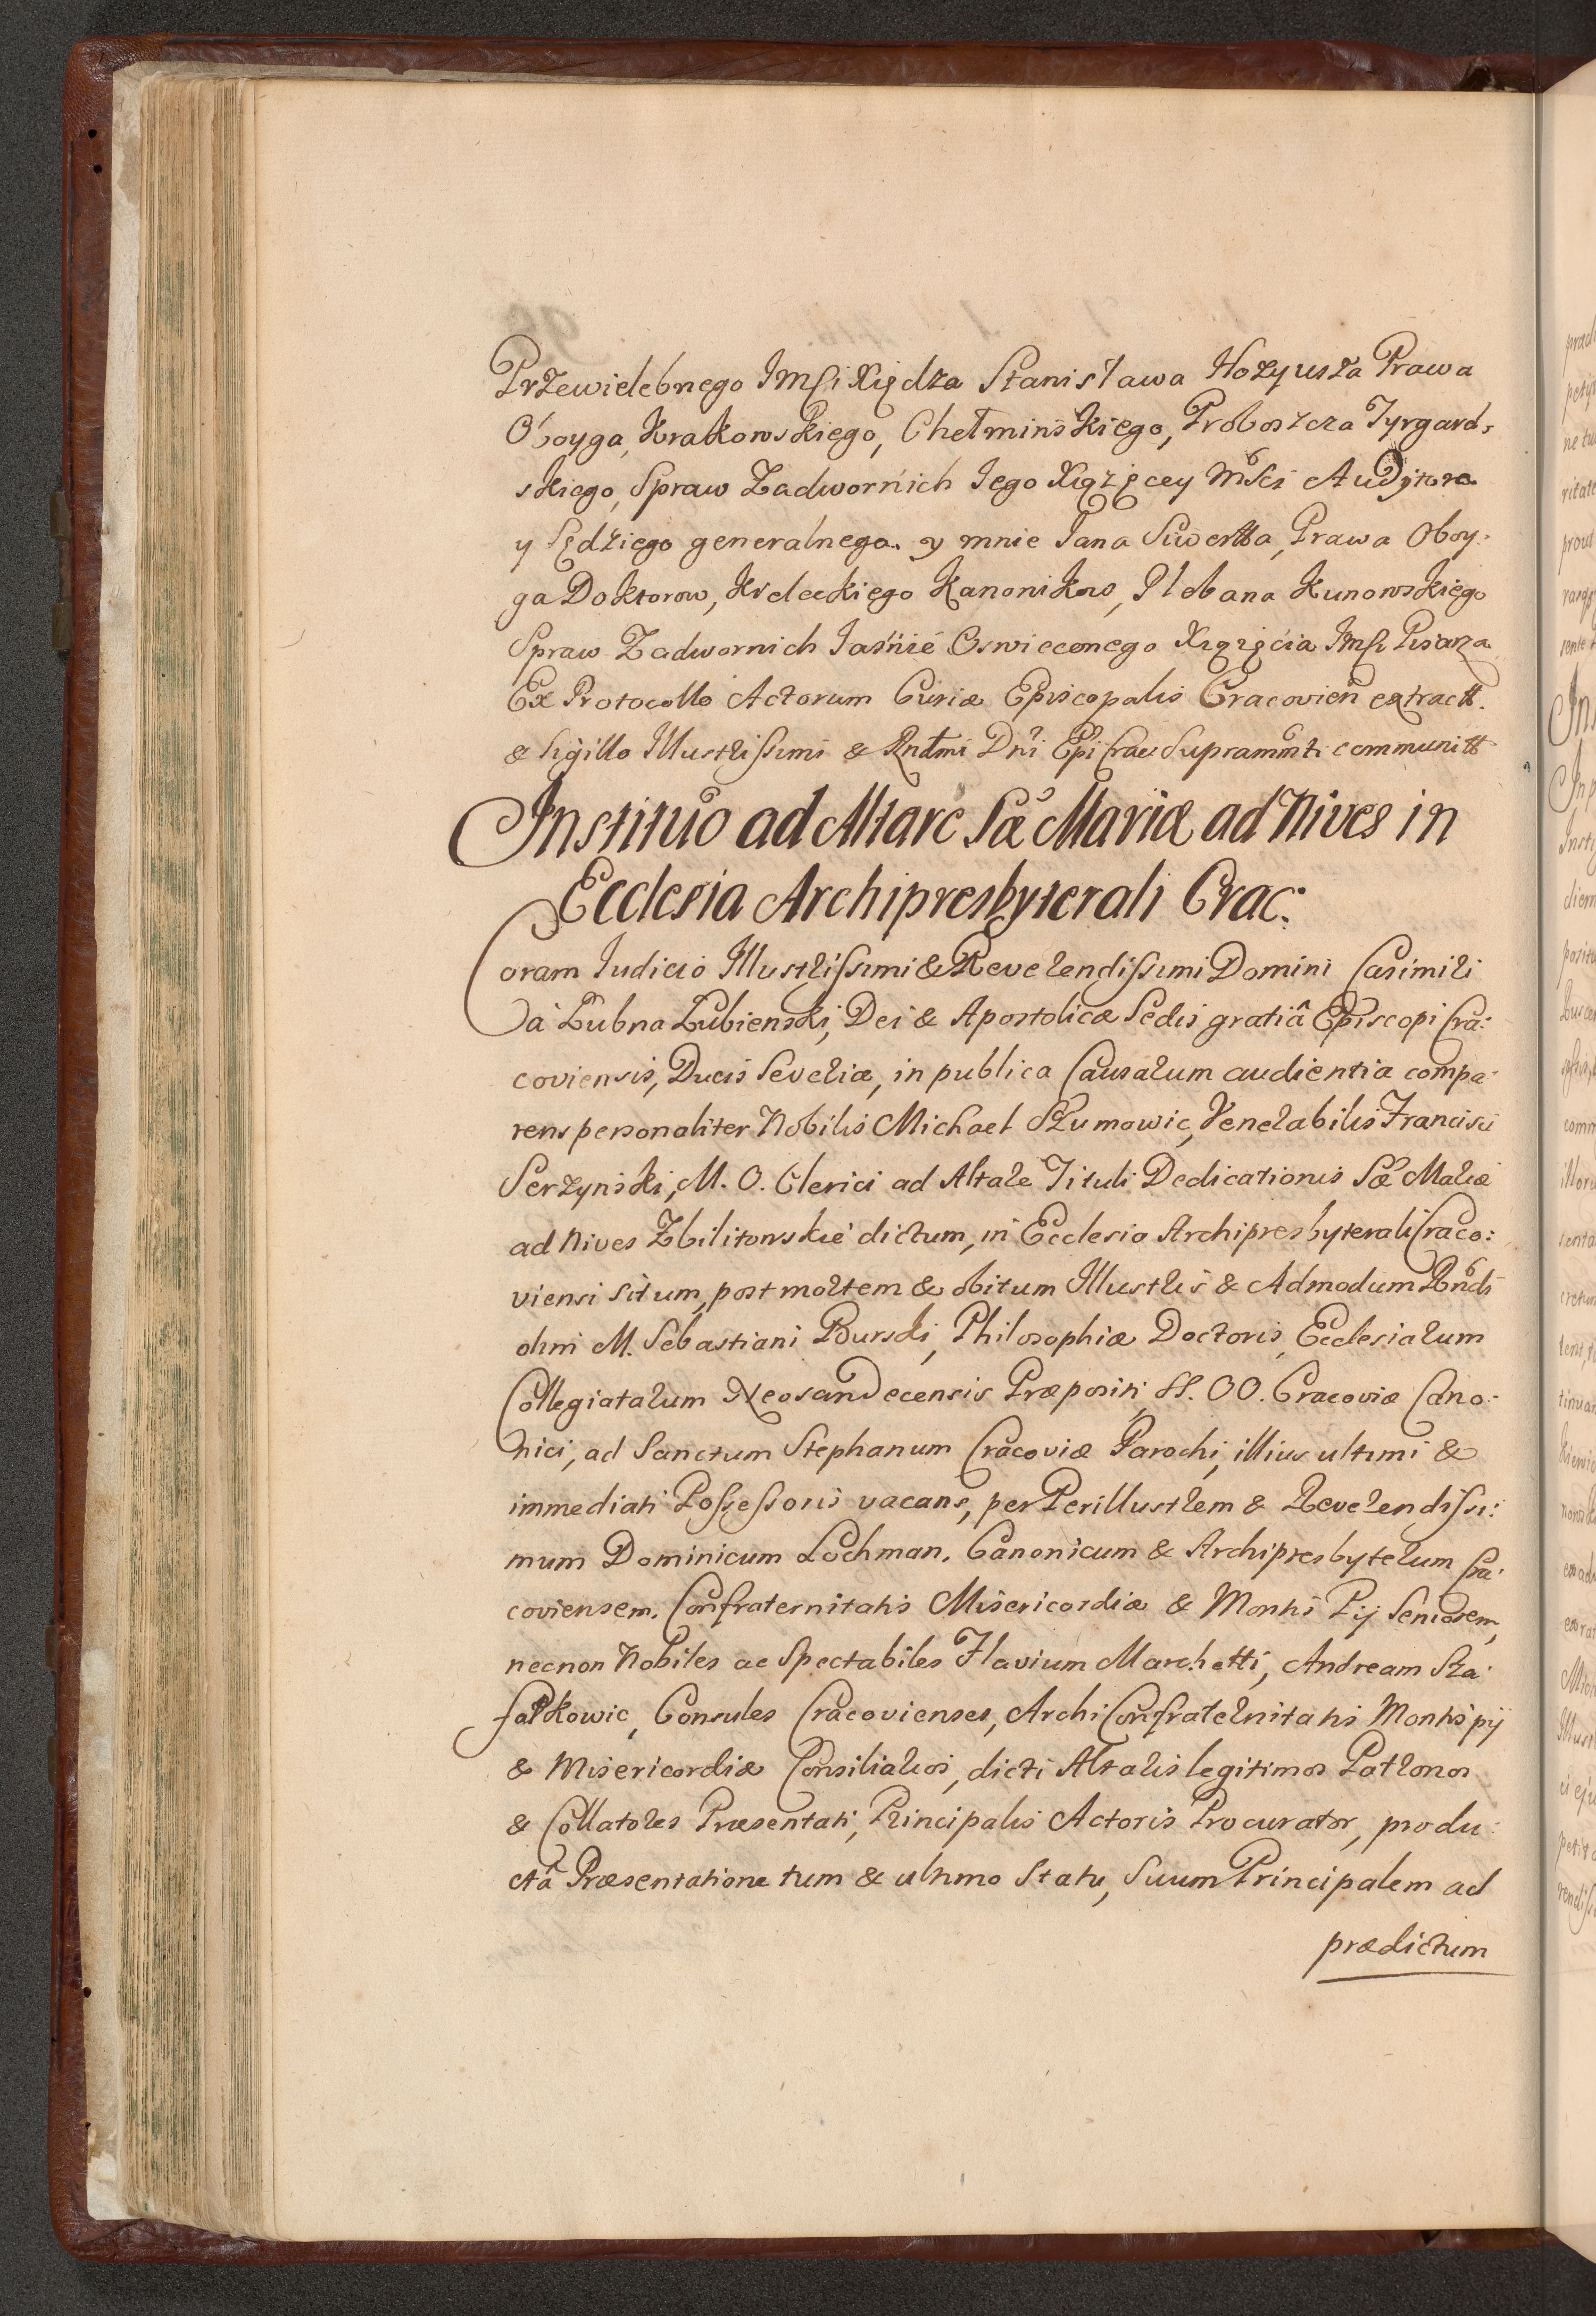 Przewielebnego Jmści Xiędza Stanisława Hozyusza Prawa
Oboyga, Krakowskiego, Chełmińskiego, Proboszcza Tyrgard-
skiego, Spraw Zadwornich Jego Xiążęcey Mści Audytora
y Sędziego generalnego. y mnie Jana Siwertta, Prawa Oboy-
ga Doktorow, Kieleckiego Kanonikow, Plebana Kunowskiego
Spraw Zadwornich Jaśnie Oswieconego Xiążęcia Jmści Pisarza
Ex Protocollo Actorum Curiæ Episcopalis Cracovien̄ extractt.
& Sigillo Illustrissimi & Rndmi Dni Epi Crac Suprammti communitt
Institu͠o ad Altare Sæ Mariæ ad Nives in
Ecclesia Archipresbyterali Crac:
Coram Iudicio Illustrissimi & Reverendissimi Domini Casimiri
à Łubna Łubienski, Dei & Apostolicæ Sedis gratiâ Episcopi Cra:
coviensis, Ducis Severiæ, in publica Causarum audientia compa-
rens personaliter Nobilis Michael Szumowic, Venerabilis Francisci
Serzynski, M. O. Clerici ad Altare Tituli Dedicationis Sæ Mariæ
ad Nives Zbilitowskie dictum, in Ecclesia Archipresbyterali Craco:
viensi situm, post mortem & obitum Illustris & Admodum Rndi
olim M. Sebastiani Burski, Philosophiæ Doctoris, Ecclesiarum
Collegiatarum Neosandecensis Præpositi, SS. OO. Cracoviæ Cano-
nici, ad Sanctum Stephanum Cracoviæ Parochi, illius ultimi &
immediati Possessoris vacans, per Perillustrem & Reverendissi:
mum Dominicum Lochman, Canonicum & Archipresbyterum Cra:
coviensem. Confraternitatis Misericordiæ & Montis Pij Seniorem,
necnon Nobiles ac Spectabiles Flavium Marchetti, Andream Sza-
farkowic, Consules Cracovienses, Archi Confraternitatis Montis pij
& Misericordiæ Consiliarios, dicti Altaris legitimos Patronos
& Collatores Præsentati, Principalis Actoris Procurator, produ:
ctâ Præsentatione tum & ultimo Statu, Suum Principalem ad
prædictum